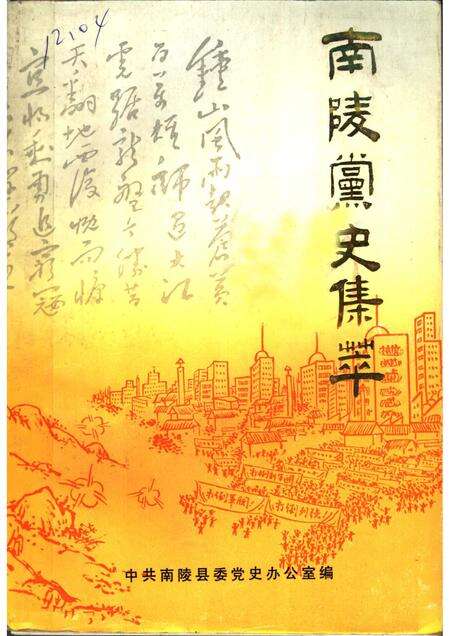 12.04
南陵黨史集萃
鍾山風雨起蒼黃
百萬雄師過大江
虎踞龍盤今勝昔
天翻地覆慨而慷
宜將剩勇追窮寇
打倒軍閥
打倒列强
中共南陵县委党史办公室编